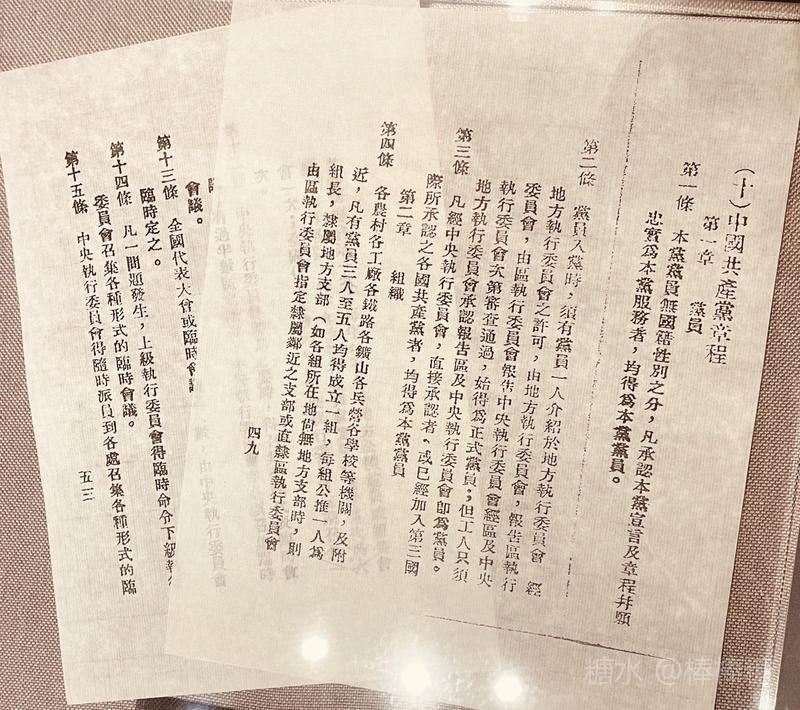 (十)中國共產黨章程
第一章 黨員
第一條 本黨黨員無國籍性別之分，凡承認本黨宣言及章程并願
忠實爲本黨服務者，均得爲本黨黨員。
第二條 黨員入黨時，須有黨員一人介紹於地方執行委員會 經
地方執行委員會之許可，由地方執行委員會，報告區執行
委員會，由區執行委員會報告中央執行委員會經區及中央
執行委員會次第審查通過，始得爲正式黨員；但工人只須
地方執行委員會承認報告區及中央執行委員會卽爲黨員。
第三條 凡經中央執行委員會，直接承認者、或已經加入第三國
際所承認之各國共產黨者，均得爲本黨黨員
第二章 組織
第四條 各農村各工廠各鐵路各鑛山各兵營各學校等機關，及附
近，凡有黨員三人至五人均得成立一組，每組公推一人爲
組長，隸屬地方支部（如各組所在地尙無地方支部時，則
由區執行委員會指定隸屬鄰近之支部或直隸區執行委員會
四九
會議。
第十三條 全國代表大會或臨時會
臨時定之。
第十四條 凡一問題發生，上級執行委員會得臨時命令下級執
委員會召集各種形式的臨時會議。
第十五條 中央執行委員會得隨時派員到各處召集各種形式的臨
五三
糖水 @棒棒